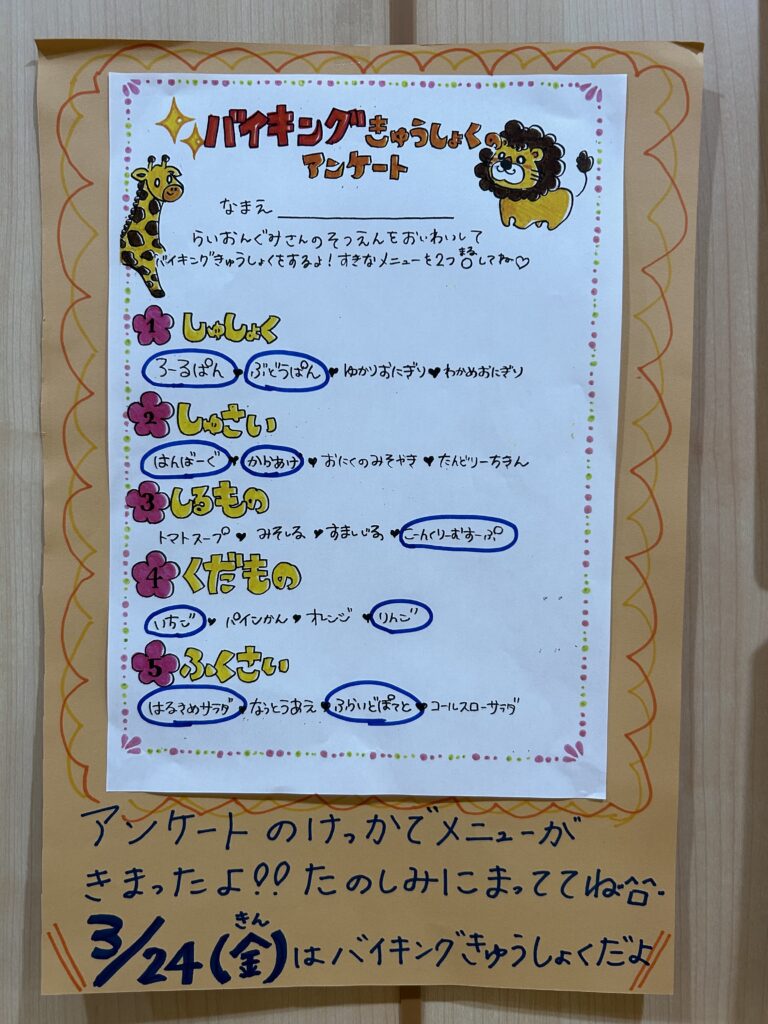 バイキングきゅうしょくの
アンケート
なまえ
らいおんぐみさんのそつえんをおいわいして
バイキングきゅうしょくをするよ！すきなメニューを2つ○まるしてね♡
1 しゅしょく
ろーるぱん ♥ ぶどうぱん ♥ ゆかりおにぎり ♥ わかめおにぎり
2 しゅさい
はんばーぐ ♥ からあげ ♥ おにくのみそやき ♥ たんどりーちきん
3 しるもの
トマトスープ ♥ みそしる ♥ すましじる ♥ こーんくりーむすーぷ
4 くだもの
いちご ♥ パインかん ♥ オレンジ ♥ りんご
5 ふくさい
はるさめサラダ ♥ なっとうあえ ♥ ふらいどぽてと ♥ コールスローサラダ
アンケートのけっかでメニューが
きまったよ!! たのしみにまっててね^^
3/24(金)きんはバイキングきゅうしょくだよ